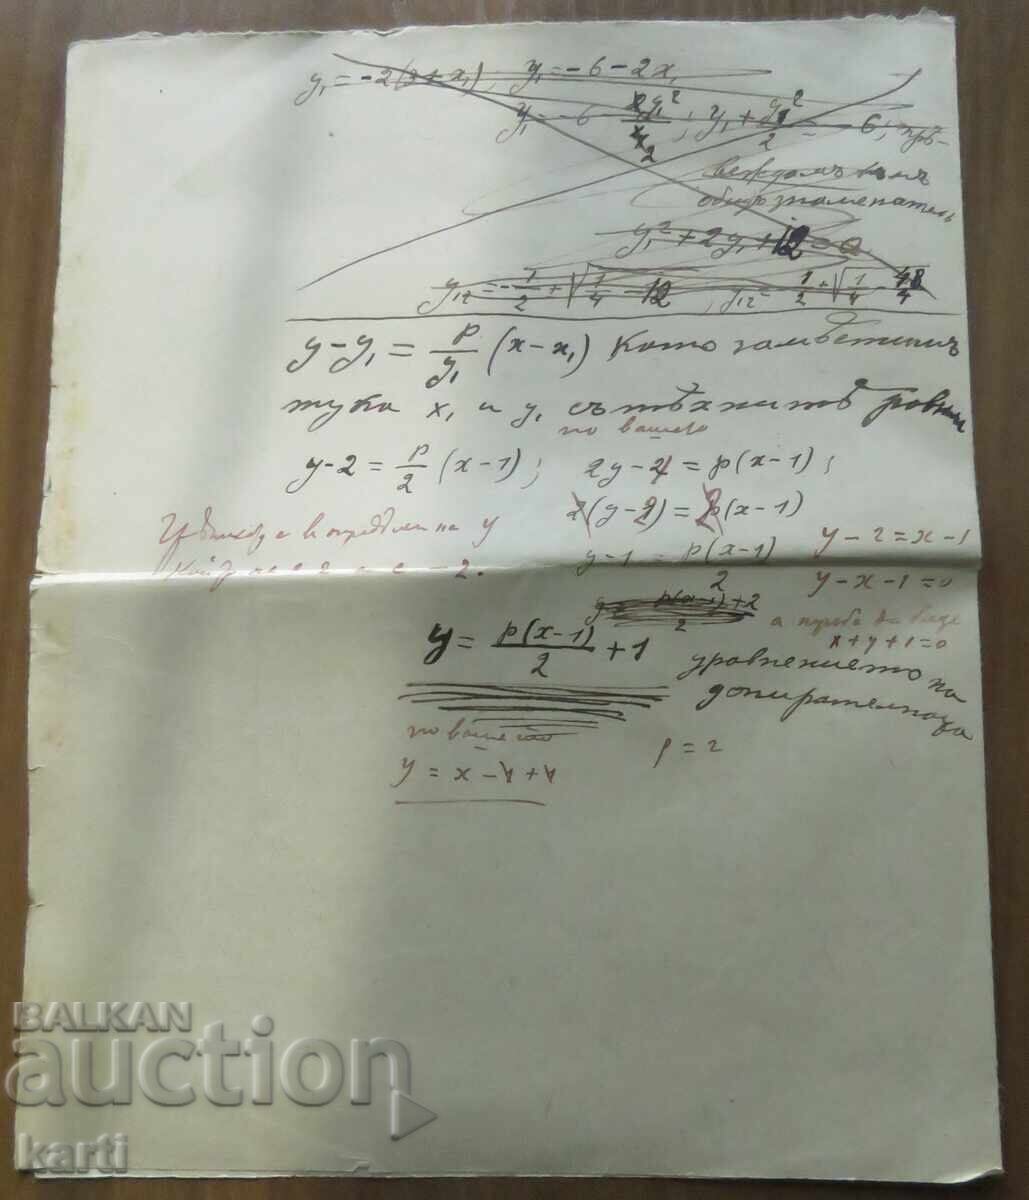 y₁ = -2(3+x₁), y₁ = -6-2x₁
y₁ = -6 - 2y₁²/x₂ ; y₁ + y₁²/2 = -6; прѣ-
веждамъ къмъ
общъ знаменатель
y₁² + 2y₁ + 12 = 0
y₁₂ = -1/2 + √(1/4 - 12 , y₁₂ = 1/2 + √(1/4 - 48/4
y-y₁ = p/y₁ (x-x₁) Като замѣстимъ
тука x₁ и y₁ съ тѣхнитѣ равни
по вашето
y-2 = p/2 (x-1); 2y-4 = p(x-1);
2(y-2) = p(x-1)
Грѣшката е въ опредѣлени на y
y-2 = x-1
който не е 2 а е -2.
y-1 = p(x-1)/2
y-x-1=0
y = p(x-1)+2/2
а трѣба да бѫде
x+y+1=0
y = p(x-1)/2 + 1
уравнението на
допирателната
по вашето
p = 2
y = x-1+1
BALKAN
auction
karti